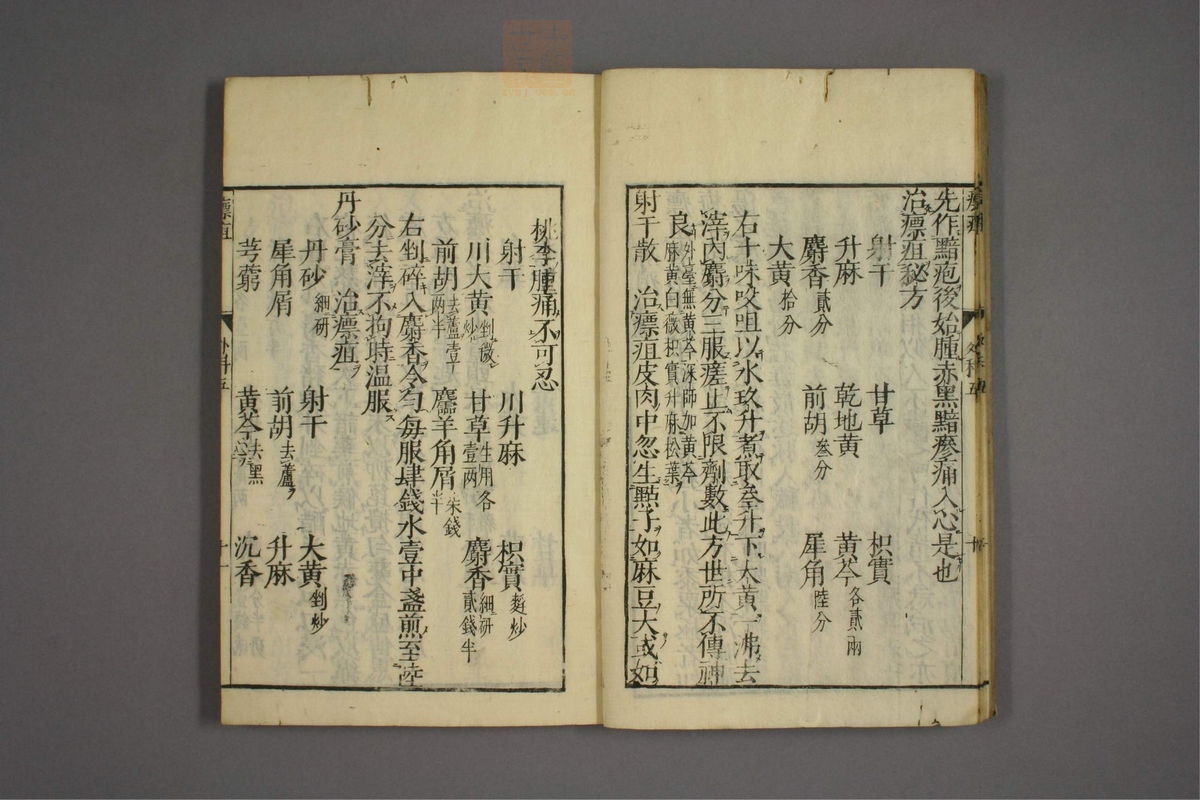 先作黯疱後始腫赤黑黯瘮痛入心是也
治瘭疽秘方
射干 甘草 枳實
升麻 乾地黄 黄芩各貳兩
麝香貳分 前胡叁分 犀角陸分
大黄拾分
右十味㕮咀以水玖升煮取叁升下大黄一沸去
滓內麝分三服瘥止不限劑數此方世所不傳神
良外臺無黄芩深師加黄芩
麻黄白薇枳實升麻松葉
射干散 治瘭疽皮肉中忽生㸃子如麻豆大或如
桃李腫痛不可忍
射干 川升麻 枳實麩炒
川大黄剉微炒 甘草生用各壹兩 麝香細研貳錢半
前胡去蘆壹兩半 麢羊角屑柒錢半
右剉碎入麝香令匀每服肆錢水壹中盞煎至陸
分去滓不拘時溫服
丹砂膏 治瘭疽
丹砂細研 射干 大黄剉炒
犀角屑 前胡去蘆 升麻
芎藭 黄芩去黑心 沉香
瘭疽
外科五
十一